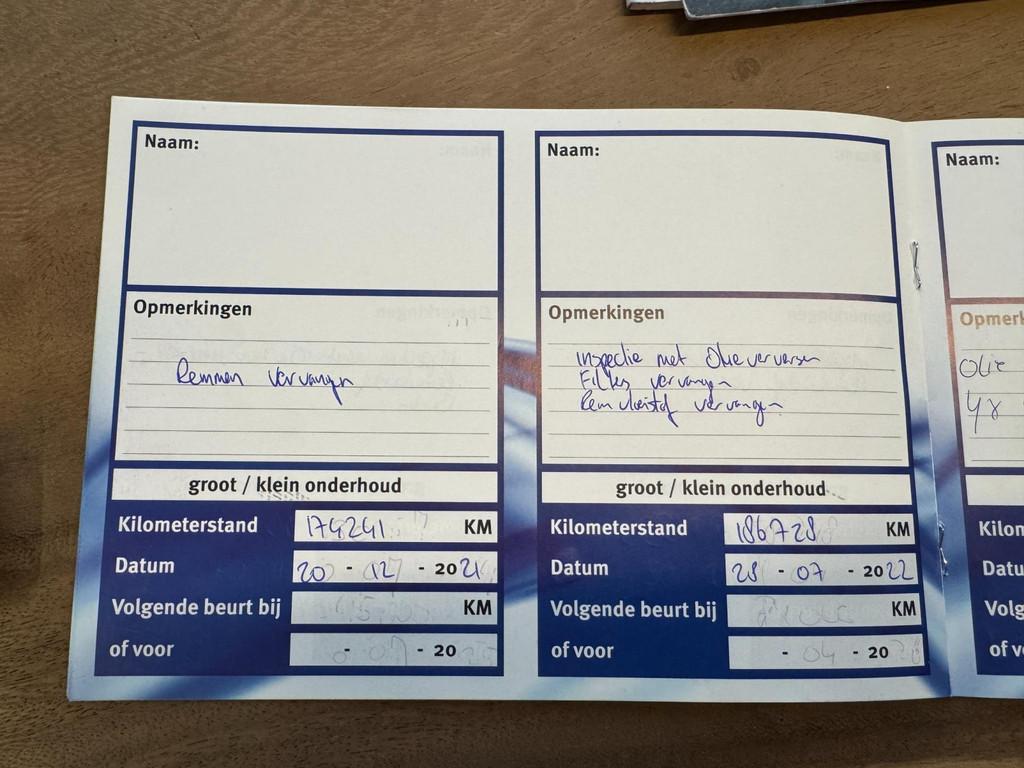 Naam:
Opmerkingen
Remmen vervangen
groot / klein onderhoud
Kilometerstand 174241 KM
Datum 20 - 12 - 2021
Volgende beurt bij KM
of voor - - 20
Naam:
Opmerkingen
Inspectie met Olie verversen
Filters vervangen
Remvloeistof vervangen
groot / klein onderhoud
Kilometerstand 186728 KM
Datum 28 - 07 - 2022
Volgende beurt bij KM
of voor - - 20
Naam:
Opmerk
Olie
4x
Kilon
Datu
Volg
of v